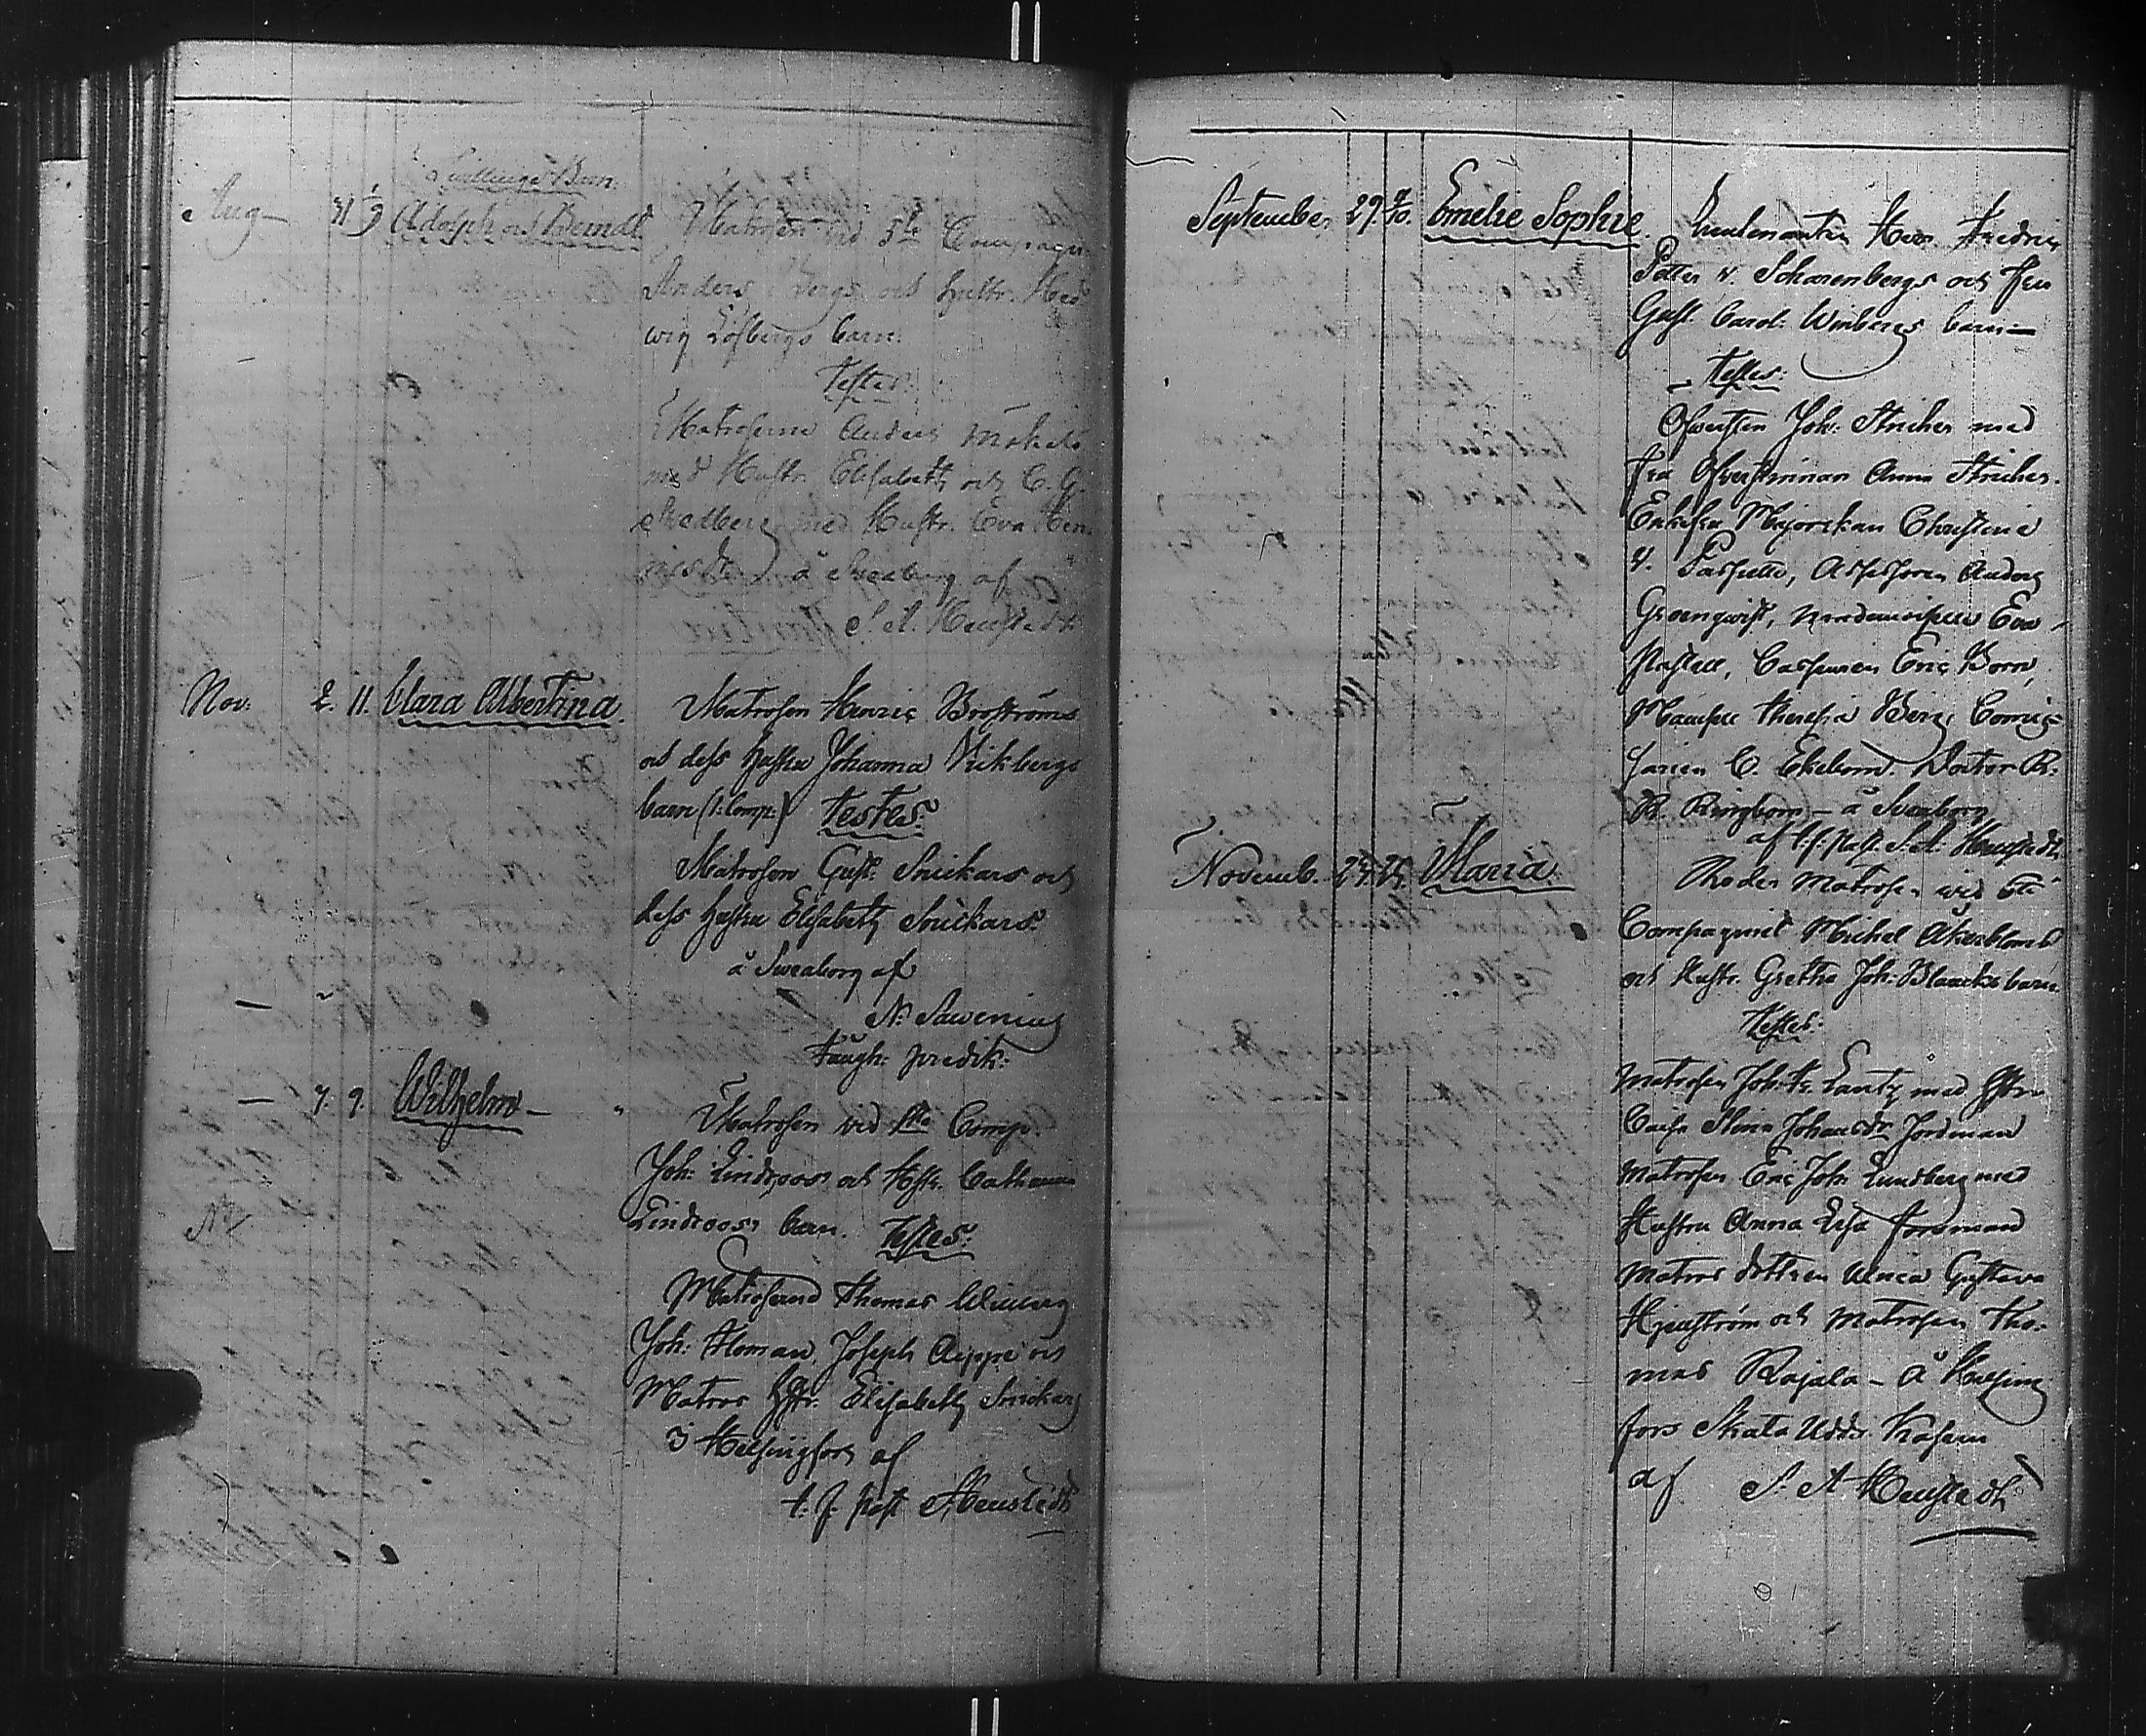 Tvillinge Barn.
Aug 31 1/9 Adolph och Berndt Matrosen vid 5te Compagn
Anders Bergs och hustr. Hed
wig Löfbergs barn.
Testes:
Matroserne Anders
med Hustr. Elisabeth och C. G.
med Hustr. Eva
å Sveaborg af
S. A.
Nov: 2. 11. Clara Albertina. Matrosen Henric Broströms
och dess hustru Johanna Vikbergs
barn (1: Comp:) Testes:
Matrosen Gust: Snickars och
dess hustru Elisabeth Snickars.
å Sveaborg af
N: Sawenius
predik:
— 7. 9. Wilhelm — Matrosen vid 1ta Comp.
Joh: Lindroos och Hstr. Catharina
Lindroos barn. Testes:
Matroserne Thomas
Joh: Homan, Joseph och
Matros Hstr. Elisabeth Snickars
I Helsingfors af
t. f. past
September 29 2/10. Emelie Sophie. Lieutenanten Herr Fredric
Petter v. Scharenbergs och fru
Gust. Carol: Winbergs barn —
Testes:
Öfversten Joh: Stricher med
fru Öfverstinnan Anna Stricher.
Enkefru Majorskan Christina
v. Assessoren Anders
Groenqvist, mademoiselle Eva
Casseuren Eric Born,
Mamsell Theresia Berg,
C. Ekebom. Doctor R:
B. Ringbom — å Sveaborg
af t. f. past. S. A.
Novemb. 24. 25. Maria. Matrosen wid 6te
Compagniet Michel Åkerbloms
och Hustr. Gretha Joh: Blaacks barn
Testes:
Matrosen Joh: Hr. Lantz med Hstru
Caisa Stina Johansdr Jordman
Matrosen Eric Joh: Lundberg med
Hustru Anna Lisa Forsman
Matros dottren Ulrica Gustava
och Matrosen Tho-
mas Rajala — å Helsing
fors Skata Udds Kasern
af S. A.